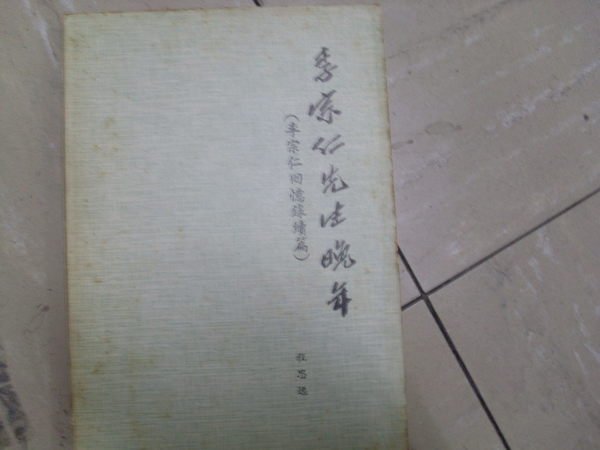 李宗仁先生晚年
(李宗仁回憶錄續篇)
程思遠